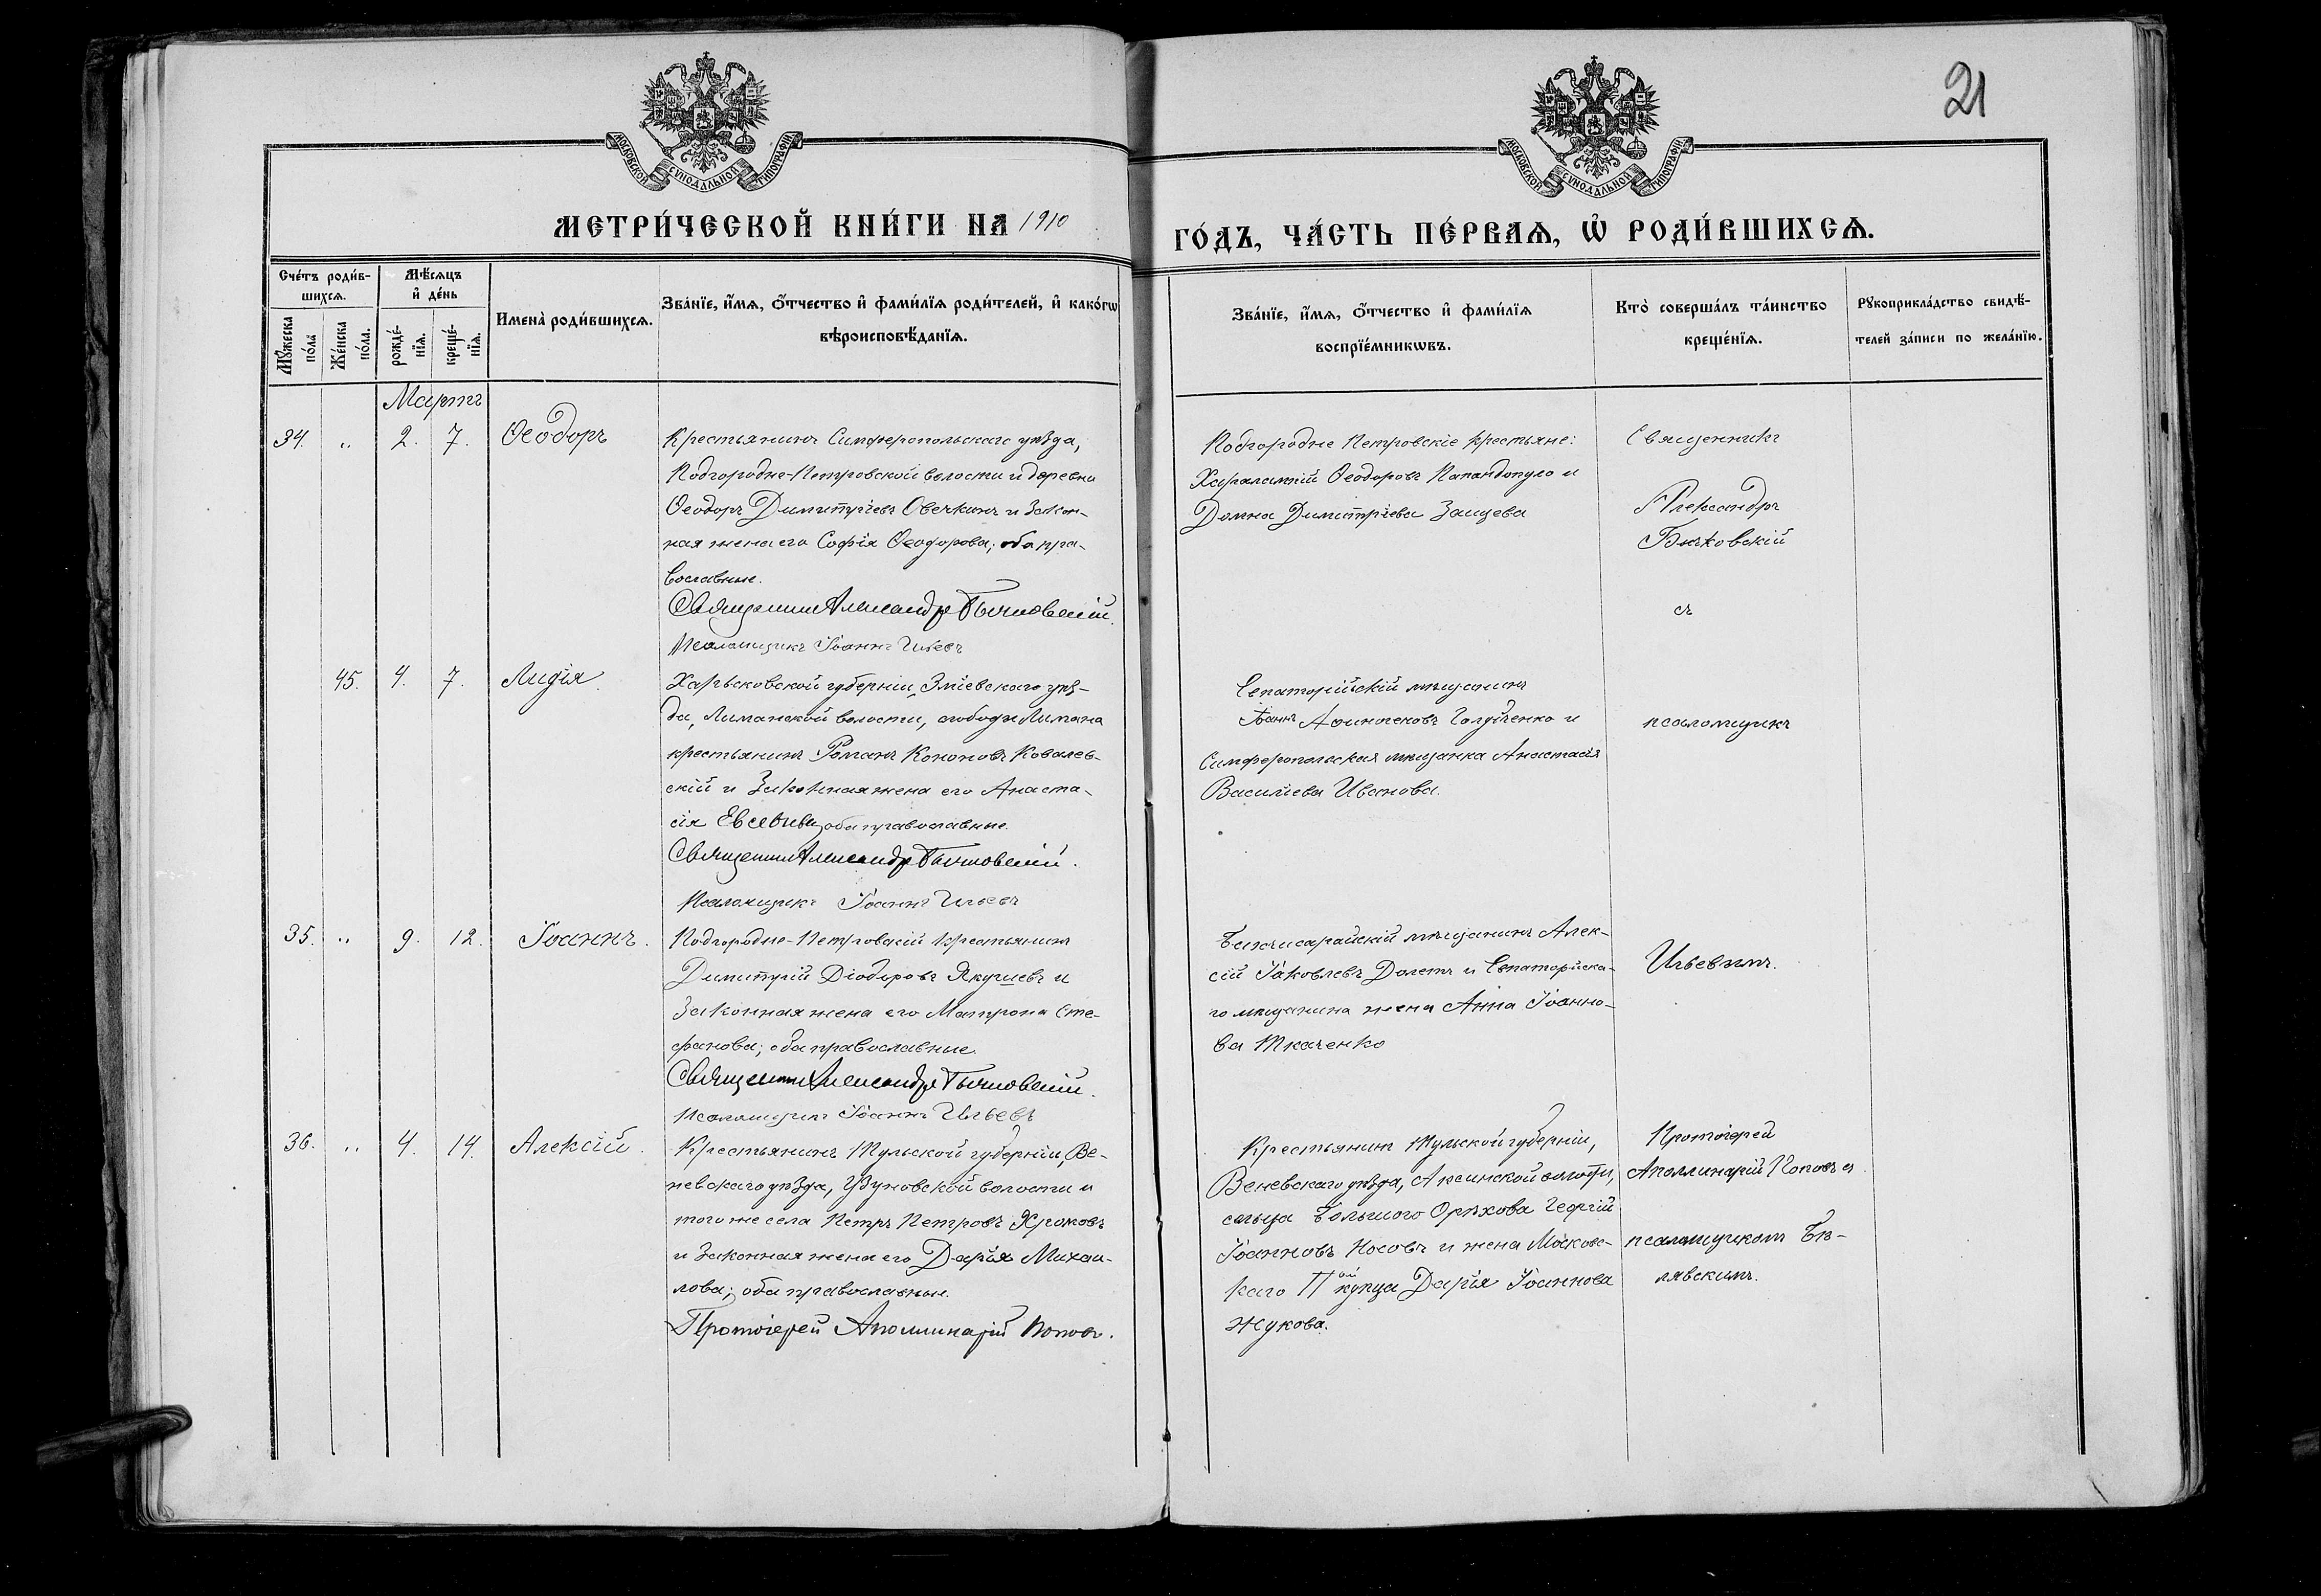 21
МОСКОВСКОЙ СѴНОДАЛЬНОЙ ТИПОГРАФІИ
МОСКОВСКОЙ СѴНОДАЛЬНОЙ ТИПОГРАФІИ
МЕТРИ́ЧЕСКОЙ КНИ́ГИ НА 1910
ГО́ДЪ, ЧА́СТЬ ПЕ́РВАѦ, Ѽ РОДИ́ВШИХСѦ.
Сче́тъ роди́в-
шихсѧ.
Мꙋ́жеска
по́ла
Же́нска
по́ла.
Мѣ́сѧцъ
и҆ де́нь
рожде́-
нїѧ.
креще́-
нїѧ.
Имена̀ роди́вшихсѧ.
Зва́нїе, и҆́мѧ, ѻ҆́тчество и҆ фами́лїѧ роди́телей, и҆ како́гѡ
вѣроисповѣ́данїѧ.
Зва́нїе, и҆́мѧ, ѻ҆́тчество и҆ фами́лїѧ
воспрїе́мникѡвъ.
Кто̀ соверша́лъ та́инство
креще́нїѧ.
Рꙋкоприкла́дство свидѣ́-
телей за́писи по жела́нїю.
Мартъ
34. " 2. 7. Ѳеодоръ
Крестьянинъ Симферопольскаго уѣзда,
Подгородне-Петровской волости и деревни
Ѳеодоръ Димитріевъ Овечкинъ и закон-
ная жена его Софія Ѳеодорова; оба пра-
вославные.
Священникъ Александръ Бычковскій.
Псаломщикъ Іоаннъ Ильевъ
Подгородне Петровскіе крестьяне:
Харалампій Ѳеодоровъ Папандопуло и
Домна Димитріева Заицева
Священникъ
Александръ
Бычковскій
съ
45. 4. 7. Лидія.
Харьковской губерніи, Зміевскаго уѣз-
да, Лиманской волости, слободы Лимана
крестьянинъ Романъ Кононовъ Ковалев-
скій и законная жена его Анаста-
сія Евсевіева, оба православные.
Священникъ Александръ Бычковскій.
Псаломщикъ Іоаннъ Ильевъ
Евпаторійскій мѣщанинъ
Іоаннъ Голубченко и
Симферопольская мѣщанка Анастасія
Васильева Иванова.
псаломщикъ
35. " 9. 12. Іоаннъ.
Подгородне-Петровскій крестьянинъ
Димитрій Діодоровъ Якушевъ и
законная жена его Матрона Сте-
фанова; оба православные.
Священникъ Александръ Бычковскій.
Псаломщикъ Іоаннъ Ильевъ
Бахчисарайскій мѣщанинъ Алек-
сій Іаковлевъ Долетъ и Евпаторійска-
го мѣщанина жена Анна Іоанно-
ва Ткаченко
Ильевымъ.
36. " 4. 14. Алексій.
Крестьянинъ Тульской губерніи, Ве-
невскаго уѣзда, Урусовской волости и
того же села Петръ Петровъ Хромовъ
и законная жена его Дарія Михаи-
лова; оба православные.
Протоіерей Аполлинарій Поповъ.
Крестьянинъ Тульской губерніи,
Веневскаго уѣзда, Аксинской волости,
сельца Большого Орѣхова Георгій
Іоанновъ Носовъ и жена Московс-
каго II ой купца Дарія Іоаннова
Жукова.
Протоіерей
Аполлинарій Поповъ съ
псаломщикомъ Бѣ-
лявскимъ.